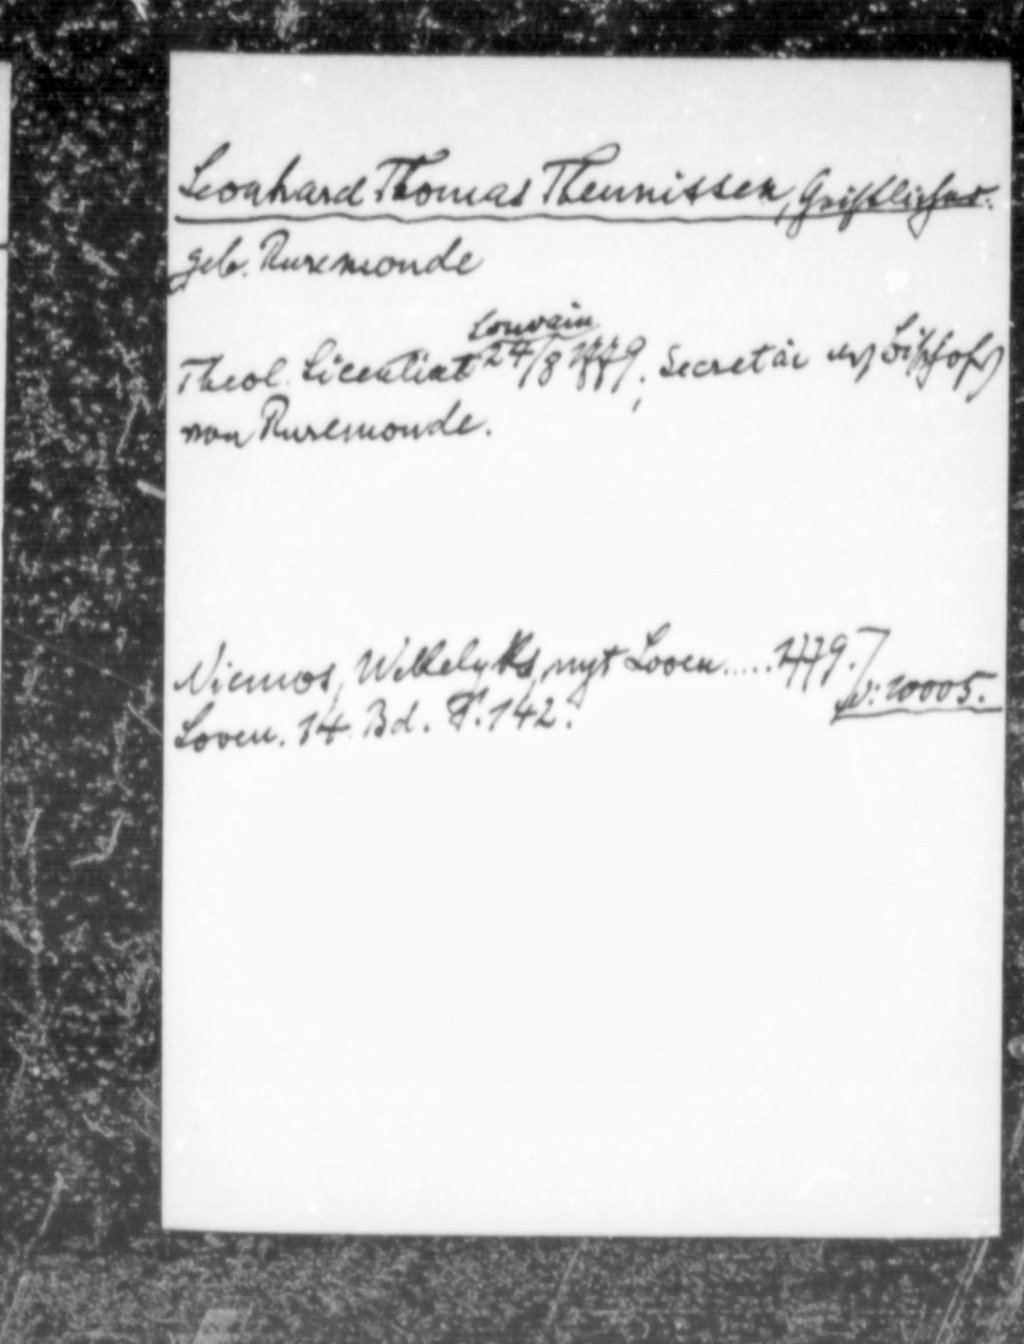 Leonhard Thomas Theunissen, Geistlicher.
geb. Ruremonde
Louvain
Theol. Licentiat 24/8 1779; Secretär des Bischofs
von Ruremonde.
Niemos, Wekkelyks, nyt Loven ..... 1779.
Loven. 14. Bd. S. 142. V: 10005.